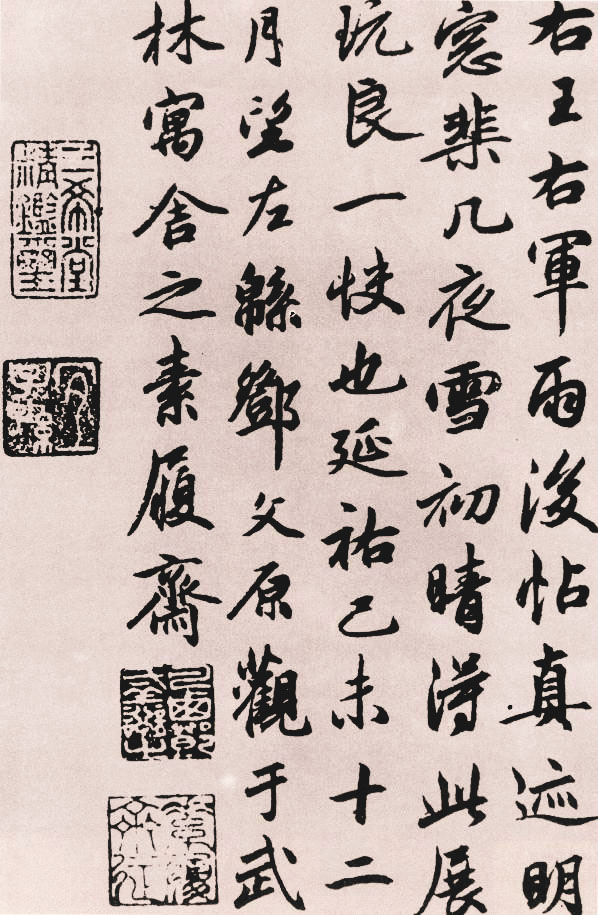 右王右軍雨後帖真迹明
窓棐几夜雪初晴得此展
玩良一快也延祐己未十二
月望左緜鄧文原觀于武
林寓舍之素履齋
三希堂
精鑑璽
宜
子孫
素履
齋